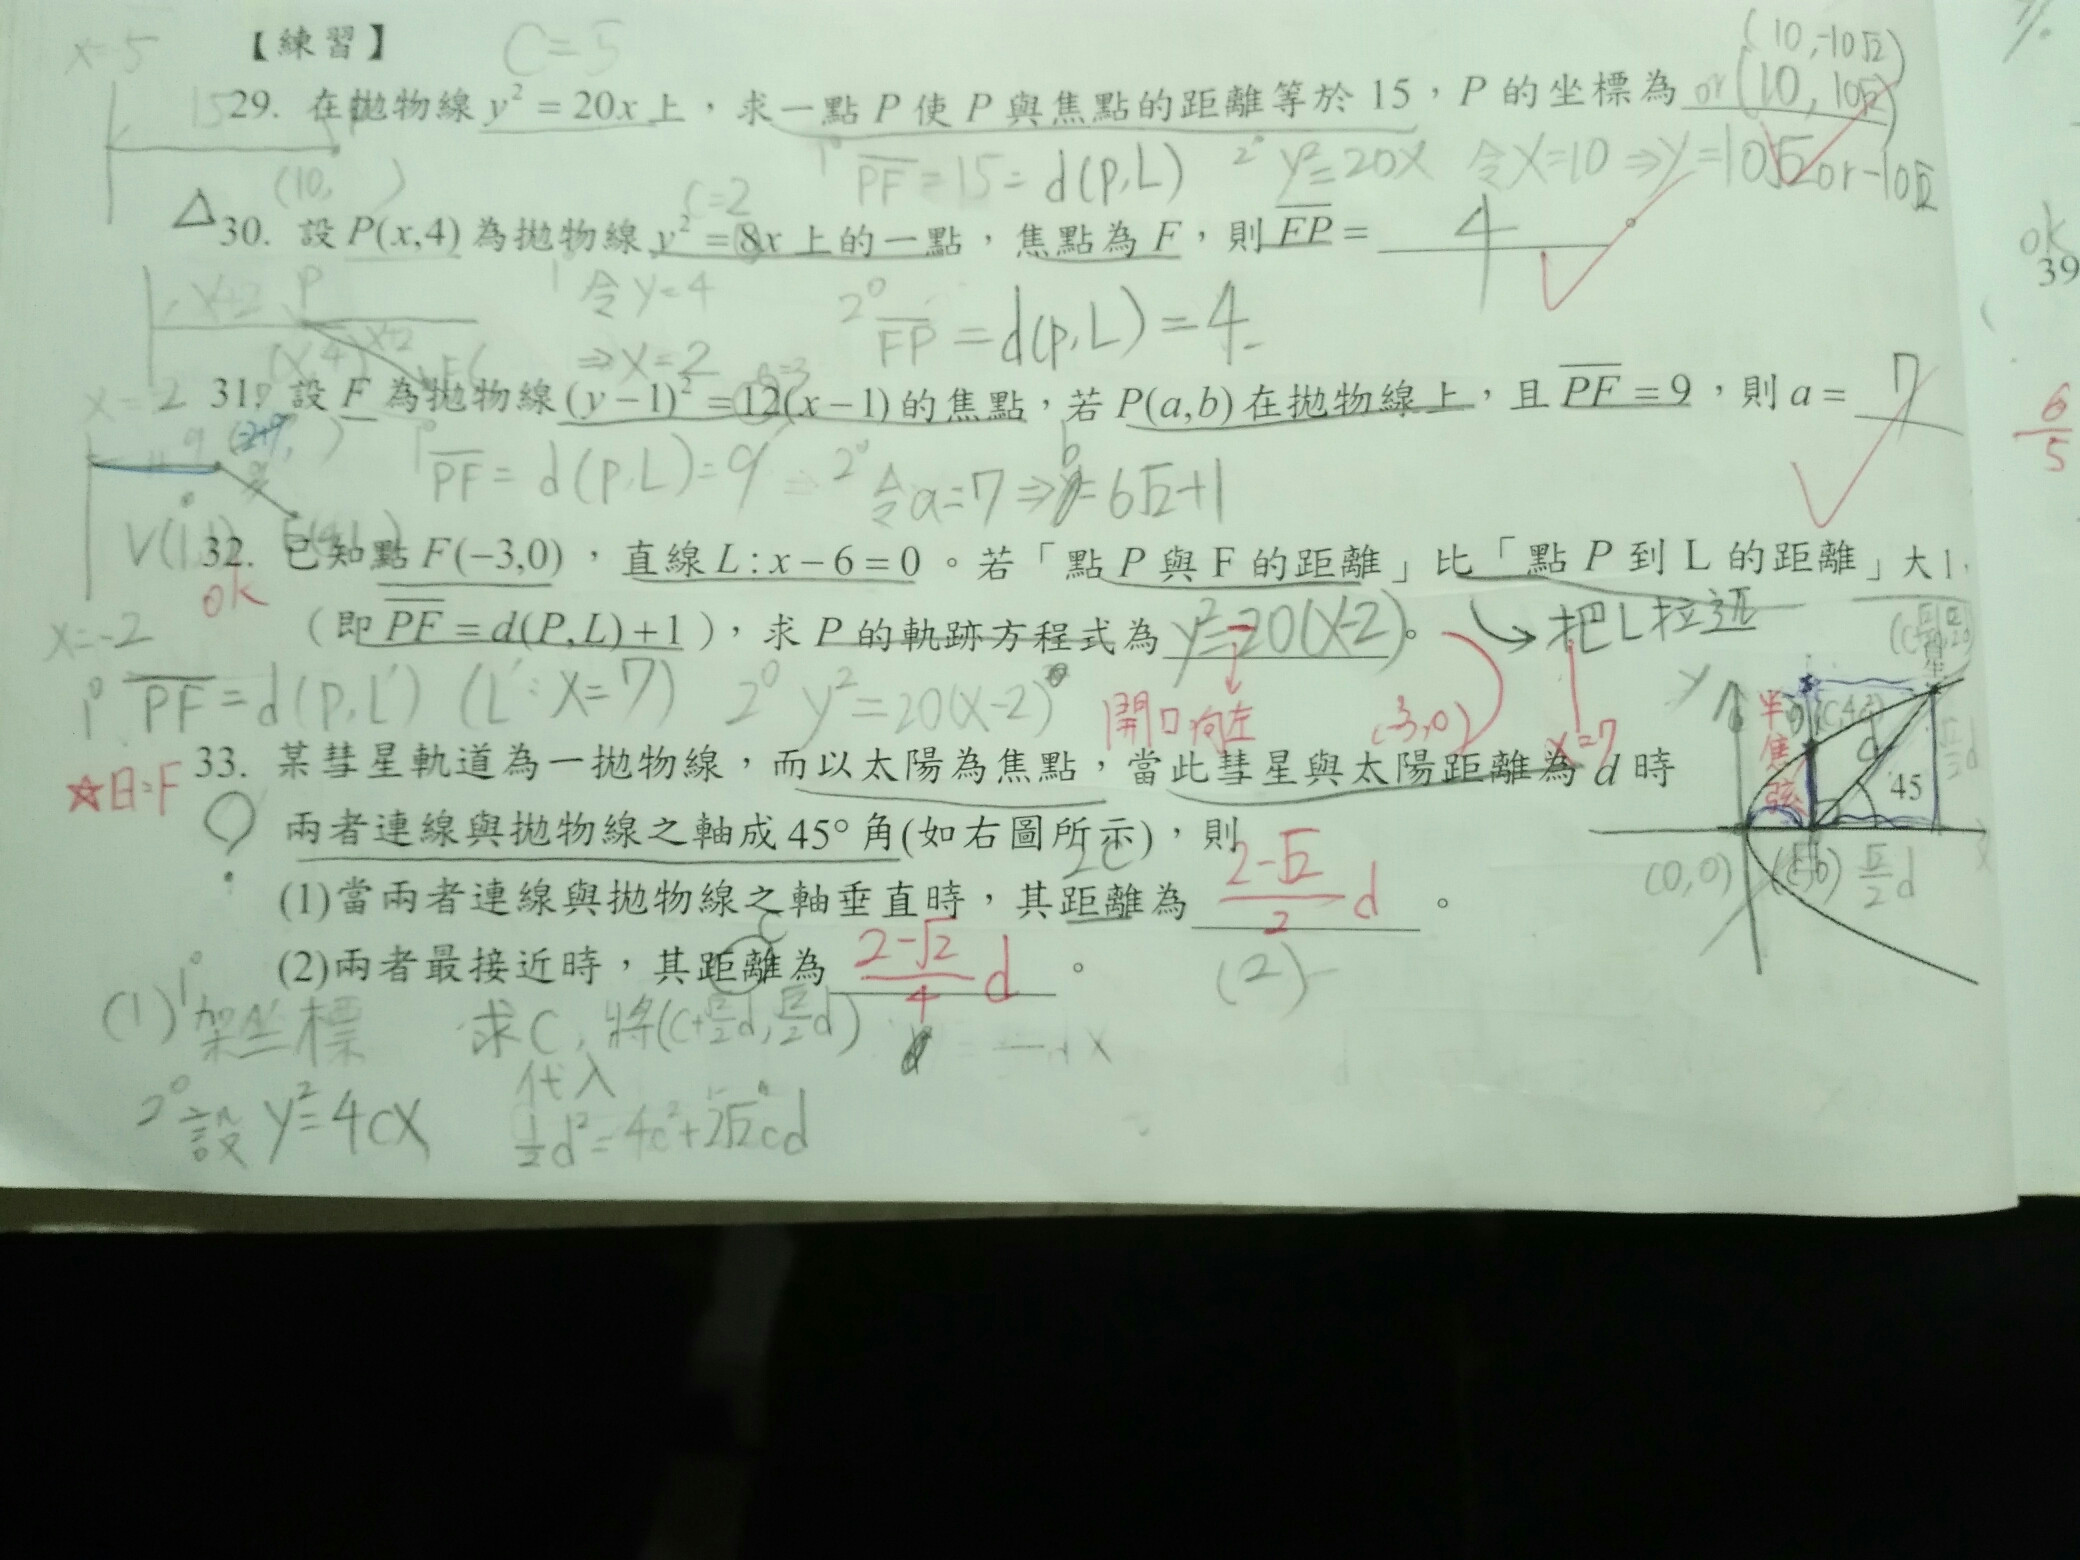 x=5 【練習】 C=5 (10,-10√2)
29. 在拋物線 y² = 20x 上，求一點 P 使 P 與焦點的距離等於 15，P 的坐標為 or (10, 10√2)
(10, ) 1° PF = 15 = d(P,L) 2° y²=20x 令x=10 ⇒ y=10√2 or -10√2
C=2
△30. 設 P(x,4) 為拋物線 y² = 8x 上的一點，焦點為 F，則 FP = 4
x+2 P 1° 令y=4 2° FP = d(P,L) = 4
(x,4) x+2 ⇒x=2
31. 設 F 為拋物線 (y-1)² = 12(x-1) 的焦點，若 P(a,b) 在拋物線上，且 PF = 9，則 a = 7
9 1° PF = d(P,L) = 9 ⇒ 2° 令a=7 ⇒ b=6√2+1
32. 已知點 F(-3,0)，直線 L : x-6=0。若「點 P 與 F 的距離」比「點 P 到 L 的距離」大1，
ok
(即 PF = d(P,L)+1)，求 P 的軌跡方程式為 y²=-20(x-2)。 → 把L拉遠
x=-2
1° PF = d(P,L') (L': x=7) 2° y²=20(x-2) 開口向左 (-3,0) x=7
33. 某彗星軌道為一拋物線，而以太陽為焦點，當此彗星與太陽距離為 d 時
☆日=F
兩者連線與拋物線之軸成 45° 角(如右圖所示)，則
2C
(1)當兩者連線與拋物線之軸垂直時，其距離為 2-√2/2 d。
C
(2)兩者最接近時，其距離為 2-√2/4 d。
y 半焦弦 d 45
(0,0) √2/2 d x
(1) 1° 架坐標 求C，將(c+√2/2 d, √2/2 d) (2)
代入
2° 設 y²=4cx ½d²=4c²+2√2cd
ok
39
6/5